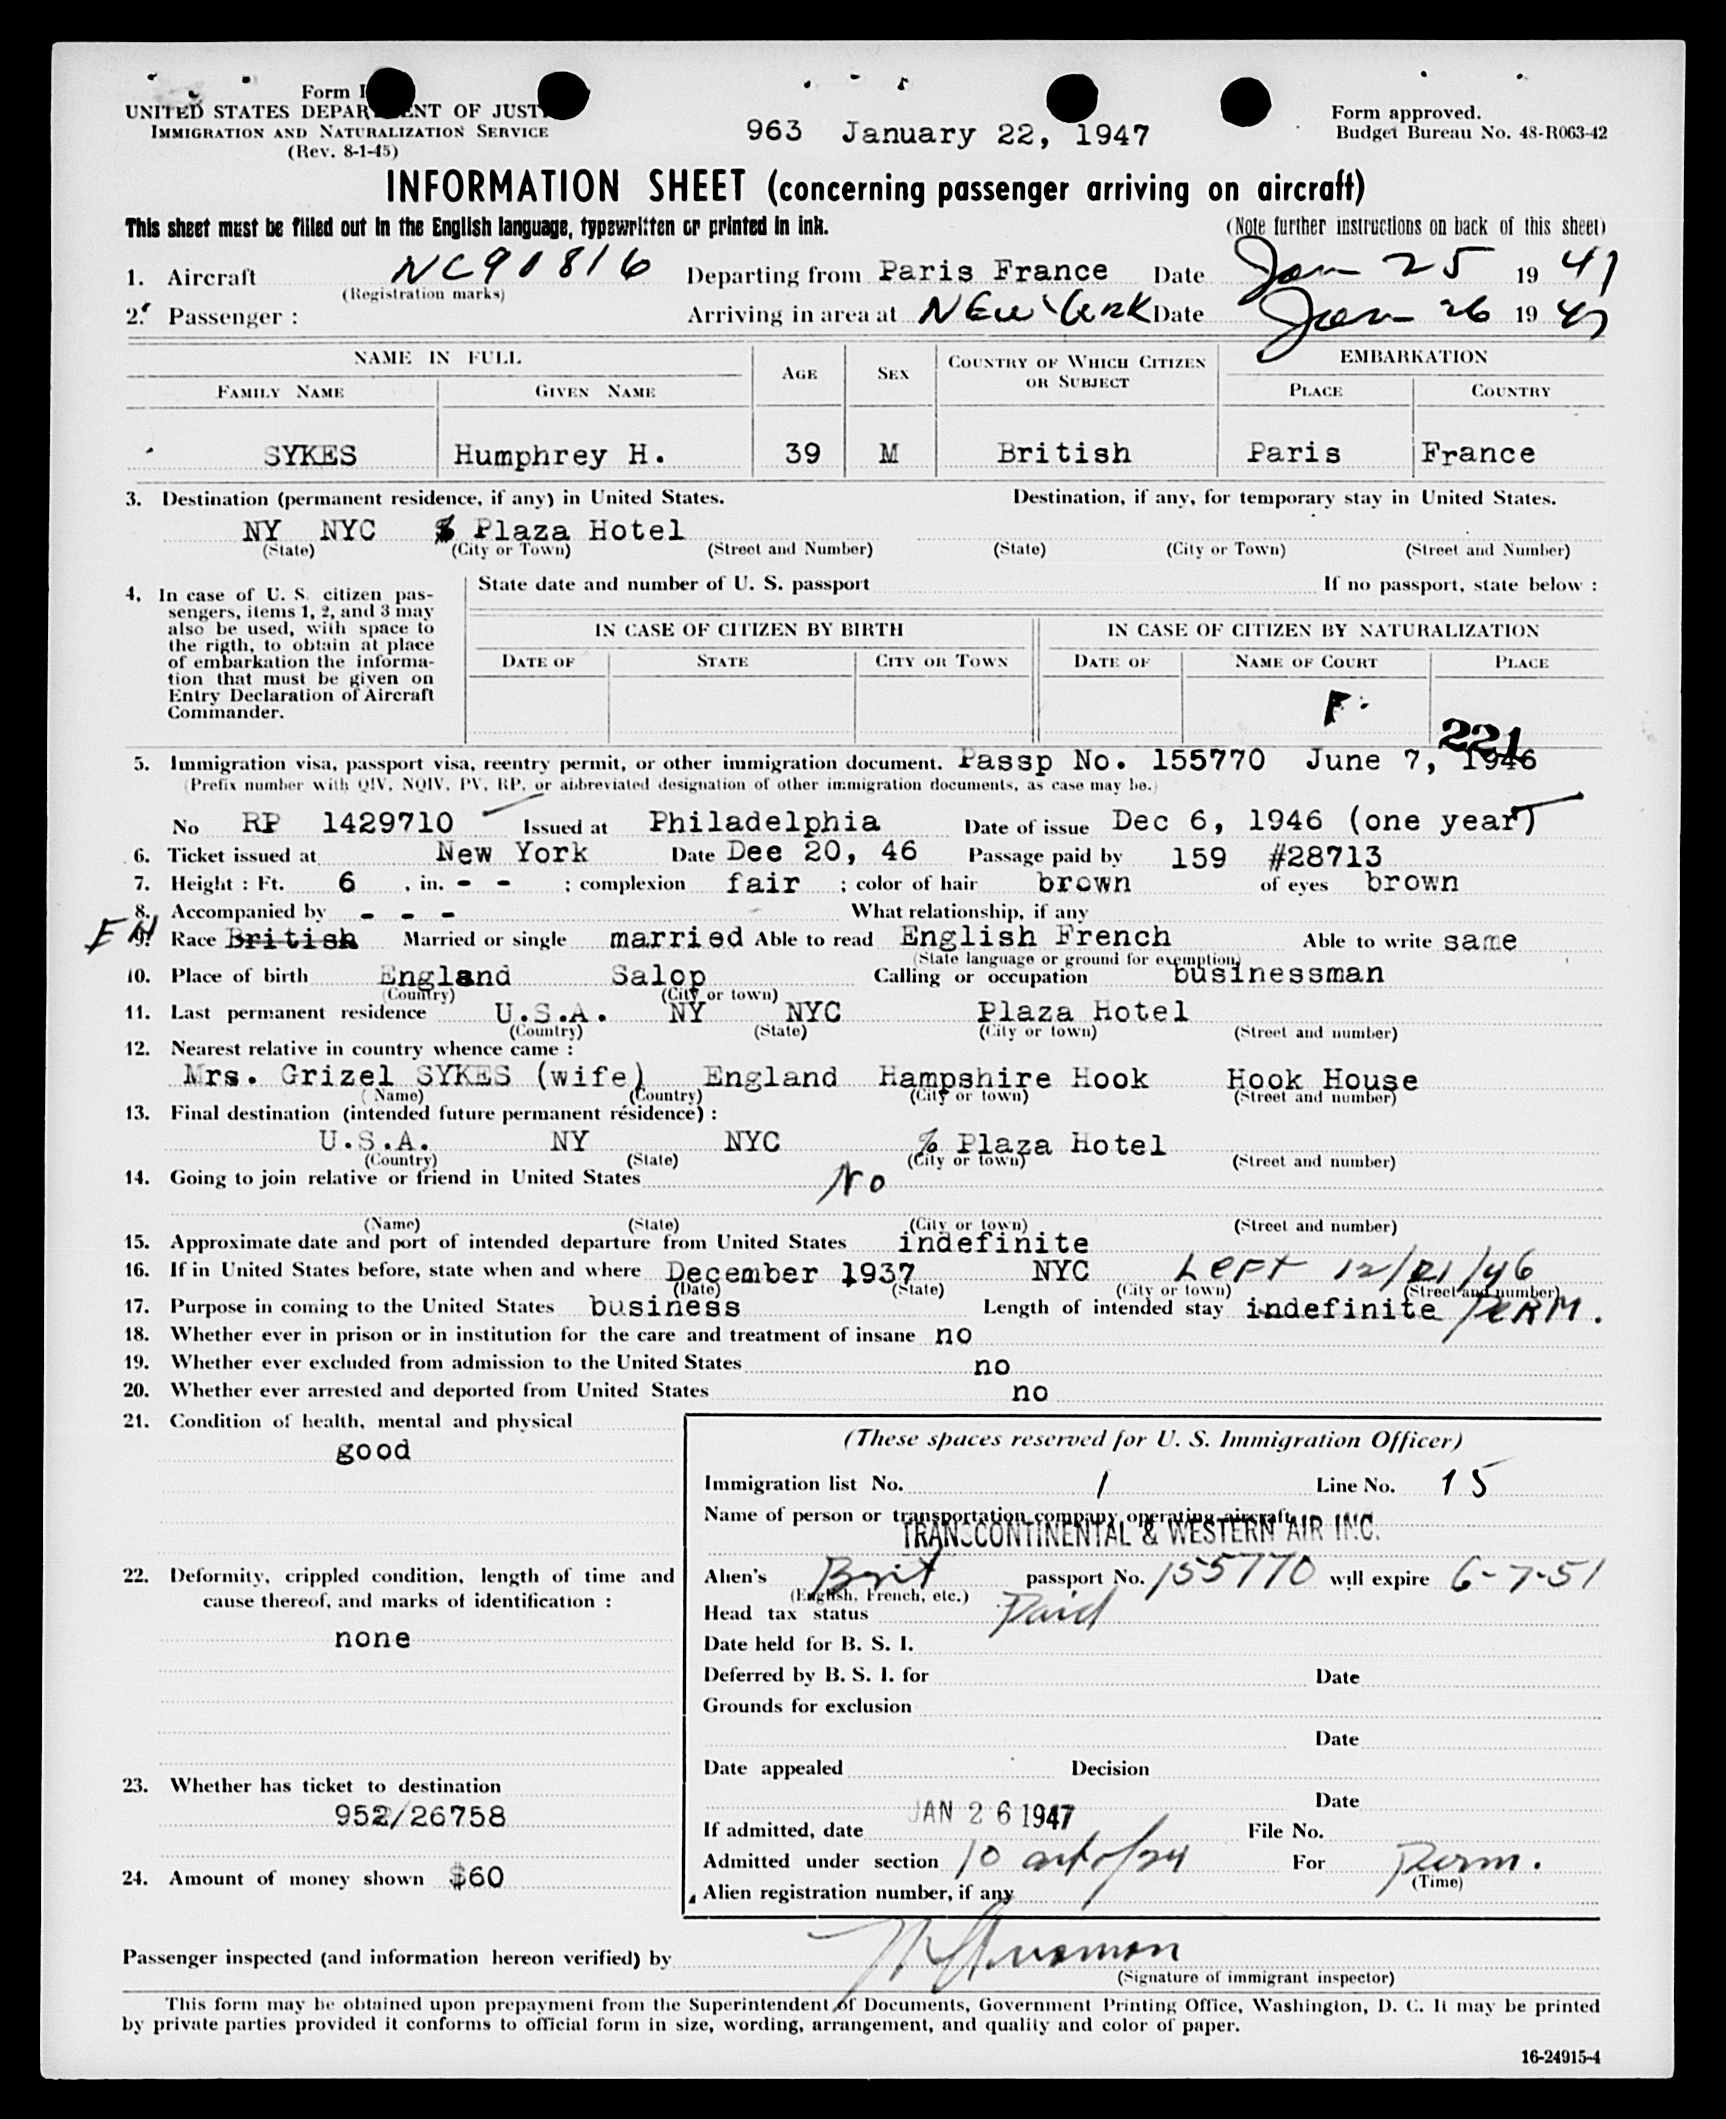 Form I
UNITED STATES DEPARTMENT OF JUSTI
IMMIGRATION AND NATURALIZATION SERVICE
(Rev. 8-1-45)
963 January 22, 1947
Form approved.
Budget Bureau No. 48-R063-42
INFORMATION SHEET (concerning passenger arriving on aircraft)
This sheet must be filled out in the English language, typewritten or printed in ink.
(Note further instructions on back of this sheet)
1. Aircraft NC91816 Departing from Paris France Date Jan 25 1947
(Registration marks)
2. Passenger : Arriving in area at NEW YORK Date Jan 26 1947
NAME IN FULL AGE SEX COUNTRY OF WHICH CITIZEN OR SUBJECT EMBARKATION
FAMILY NAME GIVEN NAME PLACE COUNTRY
SYKES Humphrey H. 39 M British Paris France
3. Destination (permanent residence, if any) in United States. Destination, if any, for temporary stay in United States.
NY NYC % Plaza Hotel
(State) (City or Town) (Street and Number) (State) (City or Town) (Street and Number)
4. In case of U. S. citizen pas-
sengers, items 1, 2, and 3 may
also be used, with space to
the rigth, to obtain at place
of embarkation the informa-
tion that must be given on
Entry Declaration of Aircraft
Commander.
State date and number of U. S. passport If no passport, state below :
IN CASE OF CITIZEN BY BIRTH IN CASE OF CITIZEN BY NATURALIZATION
DATE OF STATE CITY OR TOWN DATE OF NAME OF COURT PLACE
F.
221
5. Immigration visa, passport visa, reentry permit, or other immigration document. Passp No. 155770 June 7, 1946
(Prefix number with QIV, NQIV, PV, RP, or abbreviated designation of other immigration documents, as case may be.)
No RP 1429710 Issued at Philadelphia Date of issue Dec 6, 1946 (one year)
6. Ticket issued at New York Date Dee 20, 46 Passage paid by 159 #28713
7. Height : Ft. 6 , in. - - ; complexion fair ; color of hair brown of eyes brown
8. Accompanied by - - - What relationship, if any
EN
9. Race British Married or single married Able to read English French Able to write same
(State language or ground for exemption)
10. Place of birth England Salop Calling or occupation businessman
(Country) (City or town)
11. Last permanent residence U.S.A. NY NYC Plaza Hotel
(Country) (State) (City or town) (Street and number)
12. Nearest relative in country whence came :
Mrs. Grizel SYKES (wife) England Hampshire Hook Hook House
(Name) (Country) (City or town) (Street and number)
13. Final destination (intended future permanent résidence) :
U.S.A. NY NYC % Plaza Hotel
(Country) (State) (City or town) (Street and number)
14. Going to join relative or friend in United States No
(Name) (State) (City or town) (Street and number)
15. Approximate date and port of intended departure from United States indefinite
16. If in United States before, state when and where December 1937 NYC Left 12/21/46
(Date) (State) (City or town) (Street and number)
17. Purpose in coming to the United States business Length of intended stay indefinite PERM.
18. Whether ever in prison or in institution for the care and treatment of insane no
19. Whether ever excluded from admission to the United States no
20. Whether ever arrested and deported from United States no
21. Condition of health, mental and physical
good
22. Deformity, crippled condition, length of time and
cause thereof, and marks of identification :
none
23. Whether has ticket to destination
952/26758
24. Amount of money shown $60
(These spaces reserved for U. S. Immigration Officer)
Immigration list No. 1 Line No. 15
Name of person or transportation company operating aircraft
TRANSCONTINENTAL & WESTERN AIR INC.
Alien's Brit passport No. 155770 will expire 6-7-51
(English, French, etc.)
Head tax status Paid
Date held for B. S. I.
Deferred by B. S. I. for Date
Grounds for exclusion
Date
Date appealed Decision
Date
JAN 26 1947
If admitted, date File No.
Admitted under section 10 act of 24 For Perm.
(Time)
Alien registration number, if any
Passenger inspected (and information hereon verified) by
(Signature of immigrant inspector)
This form may be obtained upon prepayment from the Superintendent of Documents, Government Printing Office, Washington, D. C. It may be printed
by private parties provided it conforms to official form in size, wording, arrangement, and quality and color of paper.
16-24915-4